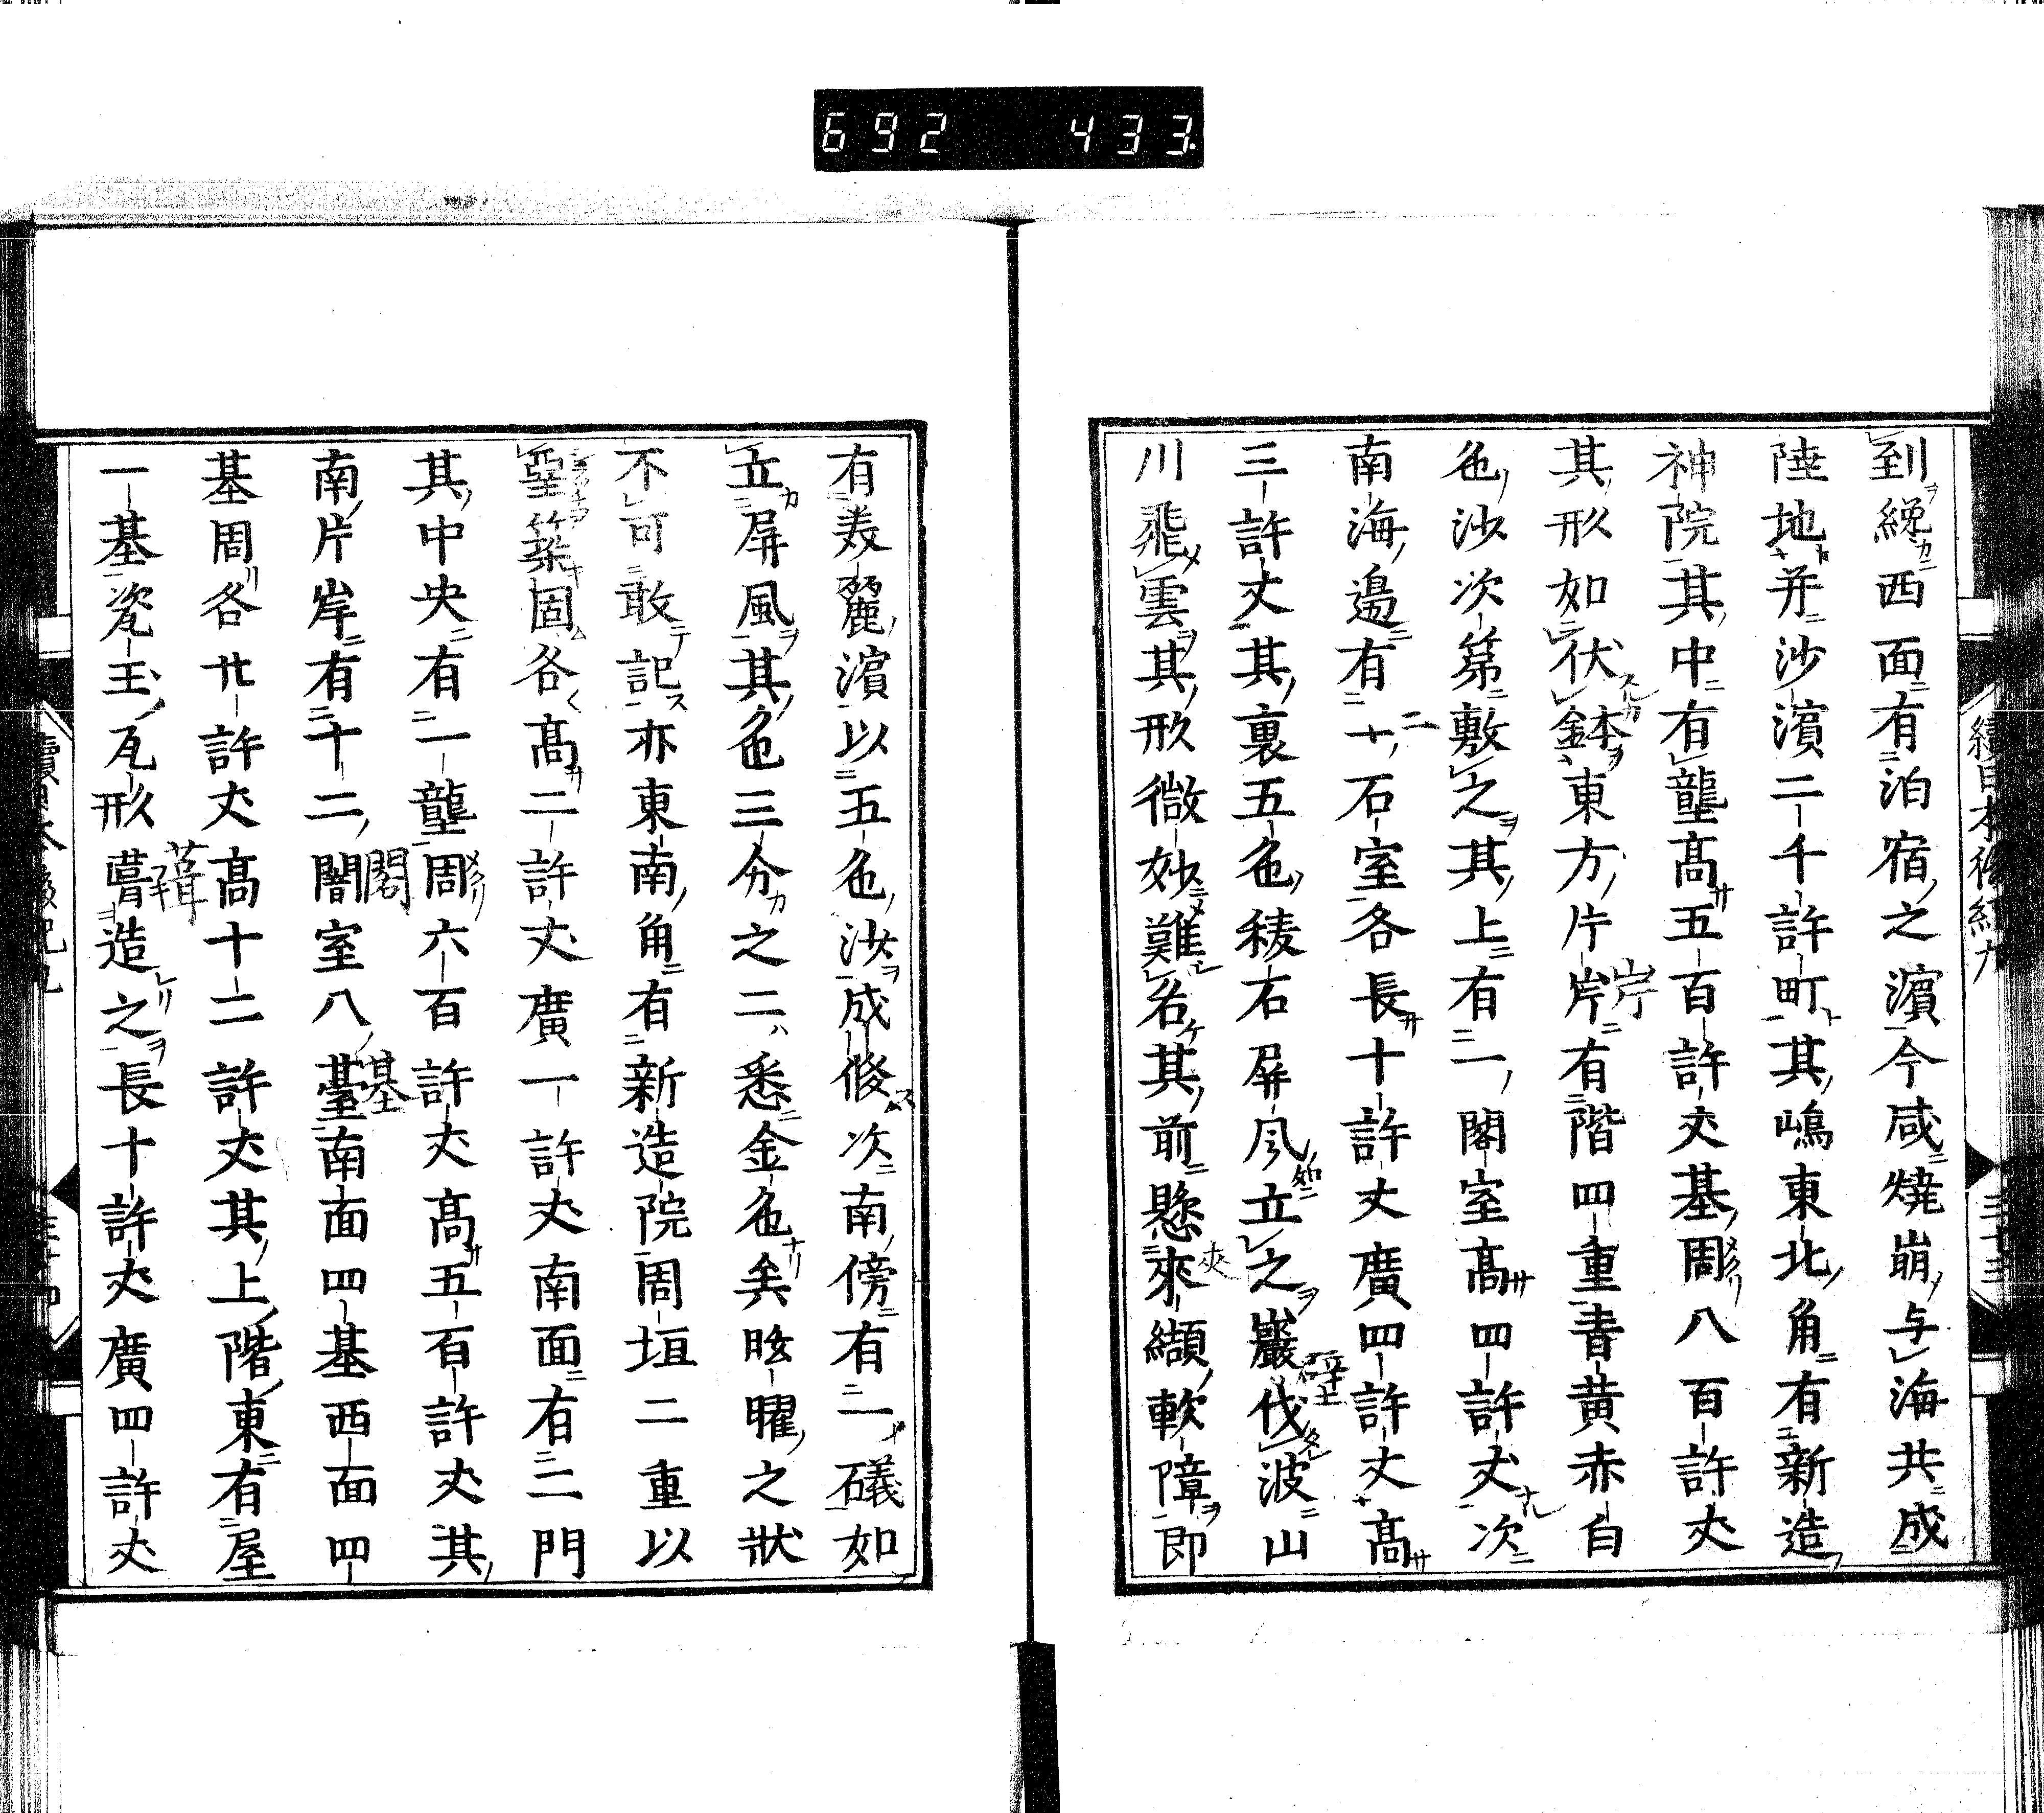 692 433.
到纔西面有泊宿之濵今咸焼崩与海共成
陸地并沙濵二千許町其嶋東北角有新造
神院其中有壟高五百許丈基周八百許丈
其形如伏鉢東方片岸有階四重青黄赤白
色沙次第敷之其上有一閣室高四許丈次
南海邉有十石室各長十許丈廣四許丈高
三許丈其裏五色稜石屏風立之巖伐波山
川飛雲其形微妙難名其前懸來纈軟障即
有羙麗濵以五色沙成修次南傍有一礒如
立屏風其色三分之二悉金色矣眩曜之狀
不可敢記亦東南角有新造院周垣二重以
堊築固各高二許丈廣一許丈南面有二門
其中央有一壟周六百許丈高五百許丈其
南片岸有十二闇室八臺南面四基西面四
基周各廿許丈高十二許丈其上階東有屋
一基瓷玉瓦形葺造之長十許丈廣四許丈